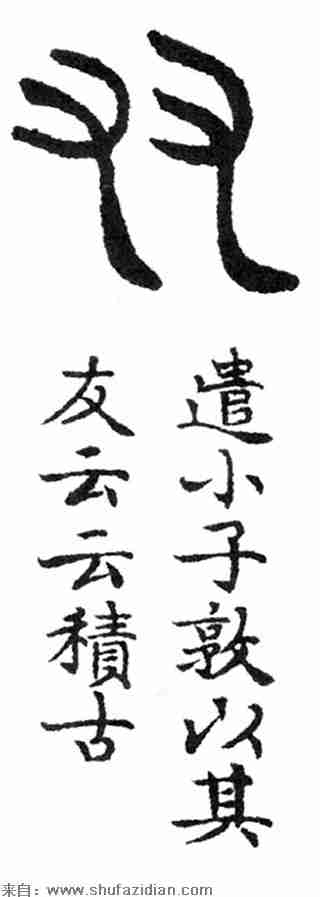 友
遣小子敦以其
友云云積古
来自：www.shufazidian.com